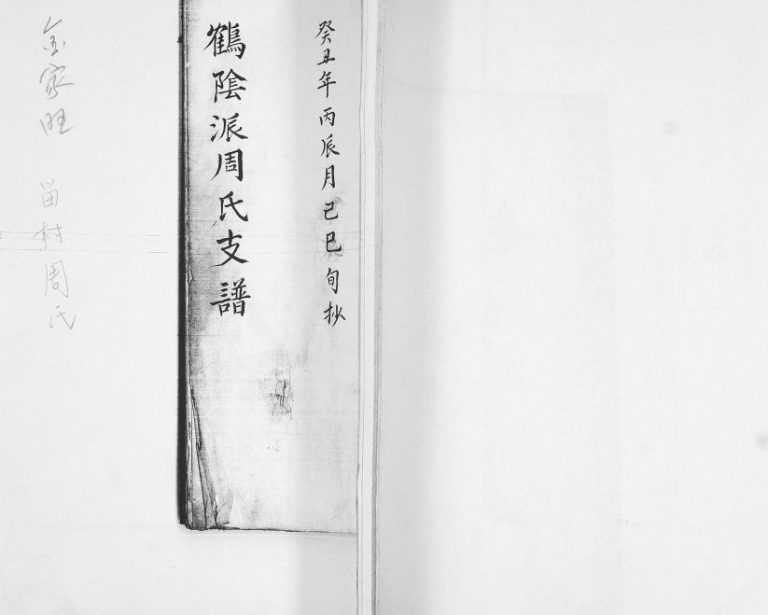 癸丑年丙辰月己巳旬抄
鶴陰派周氏支譜
金家旺 苗村周氏